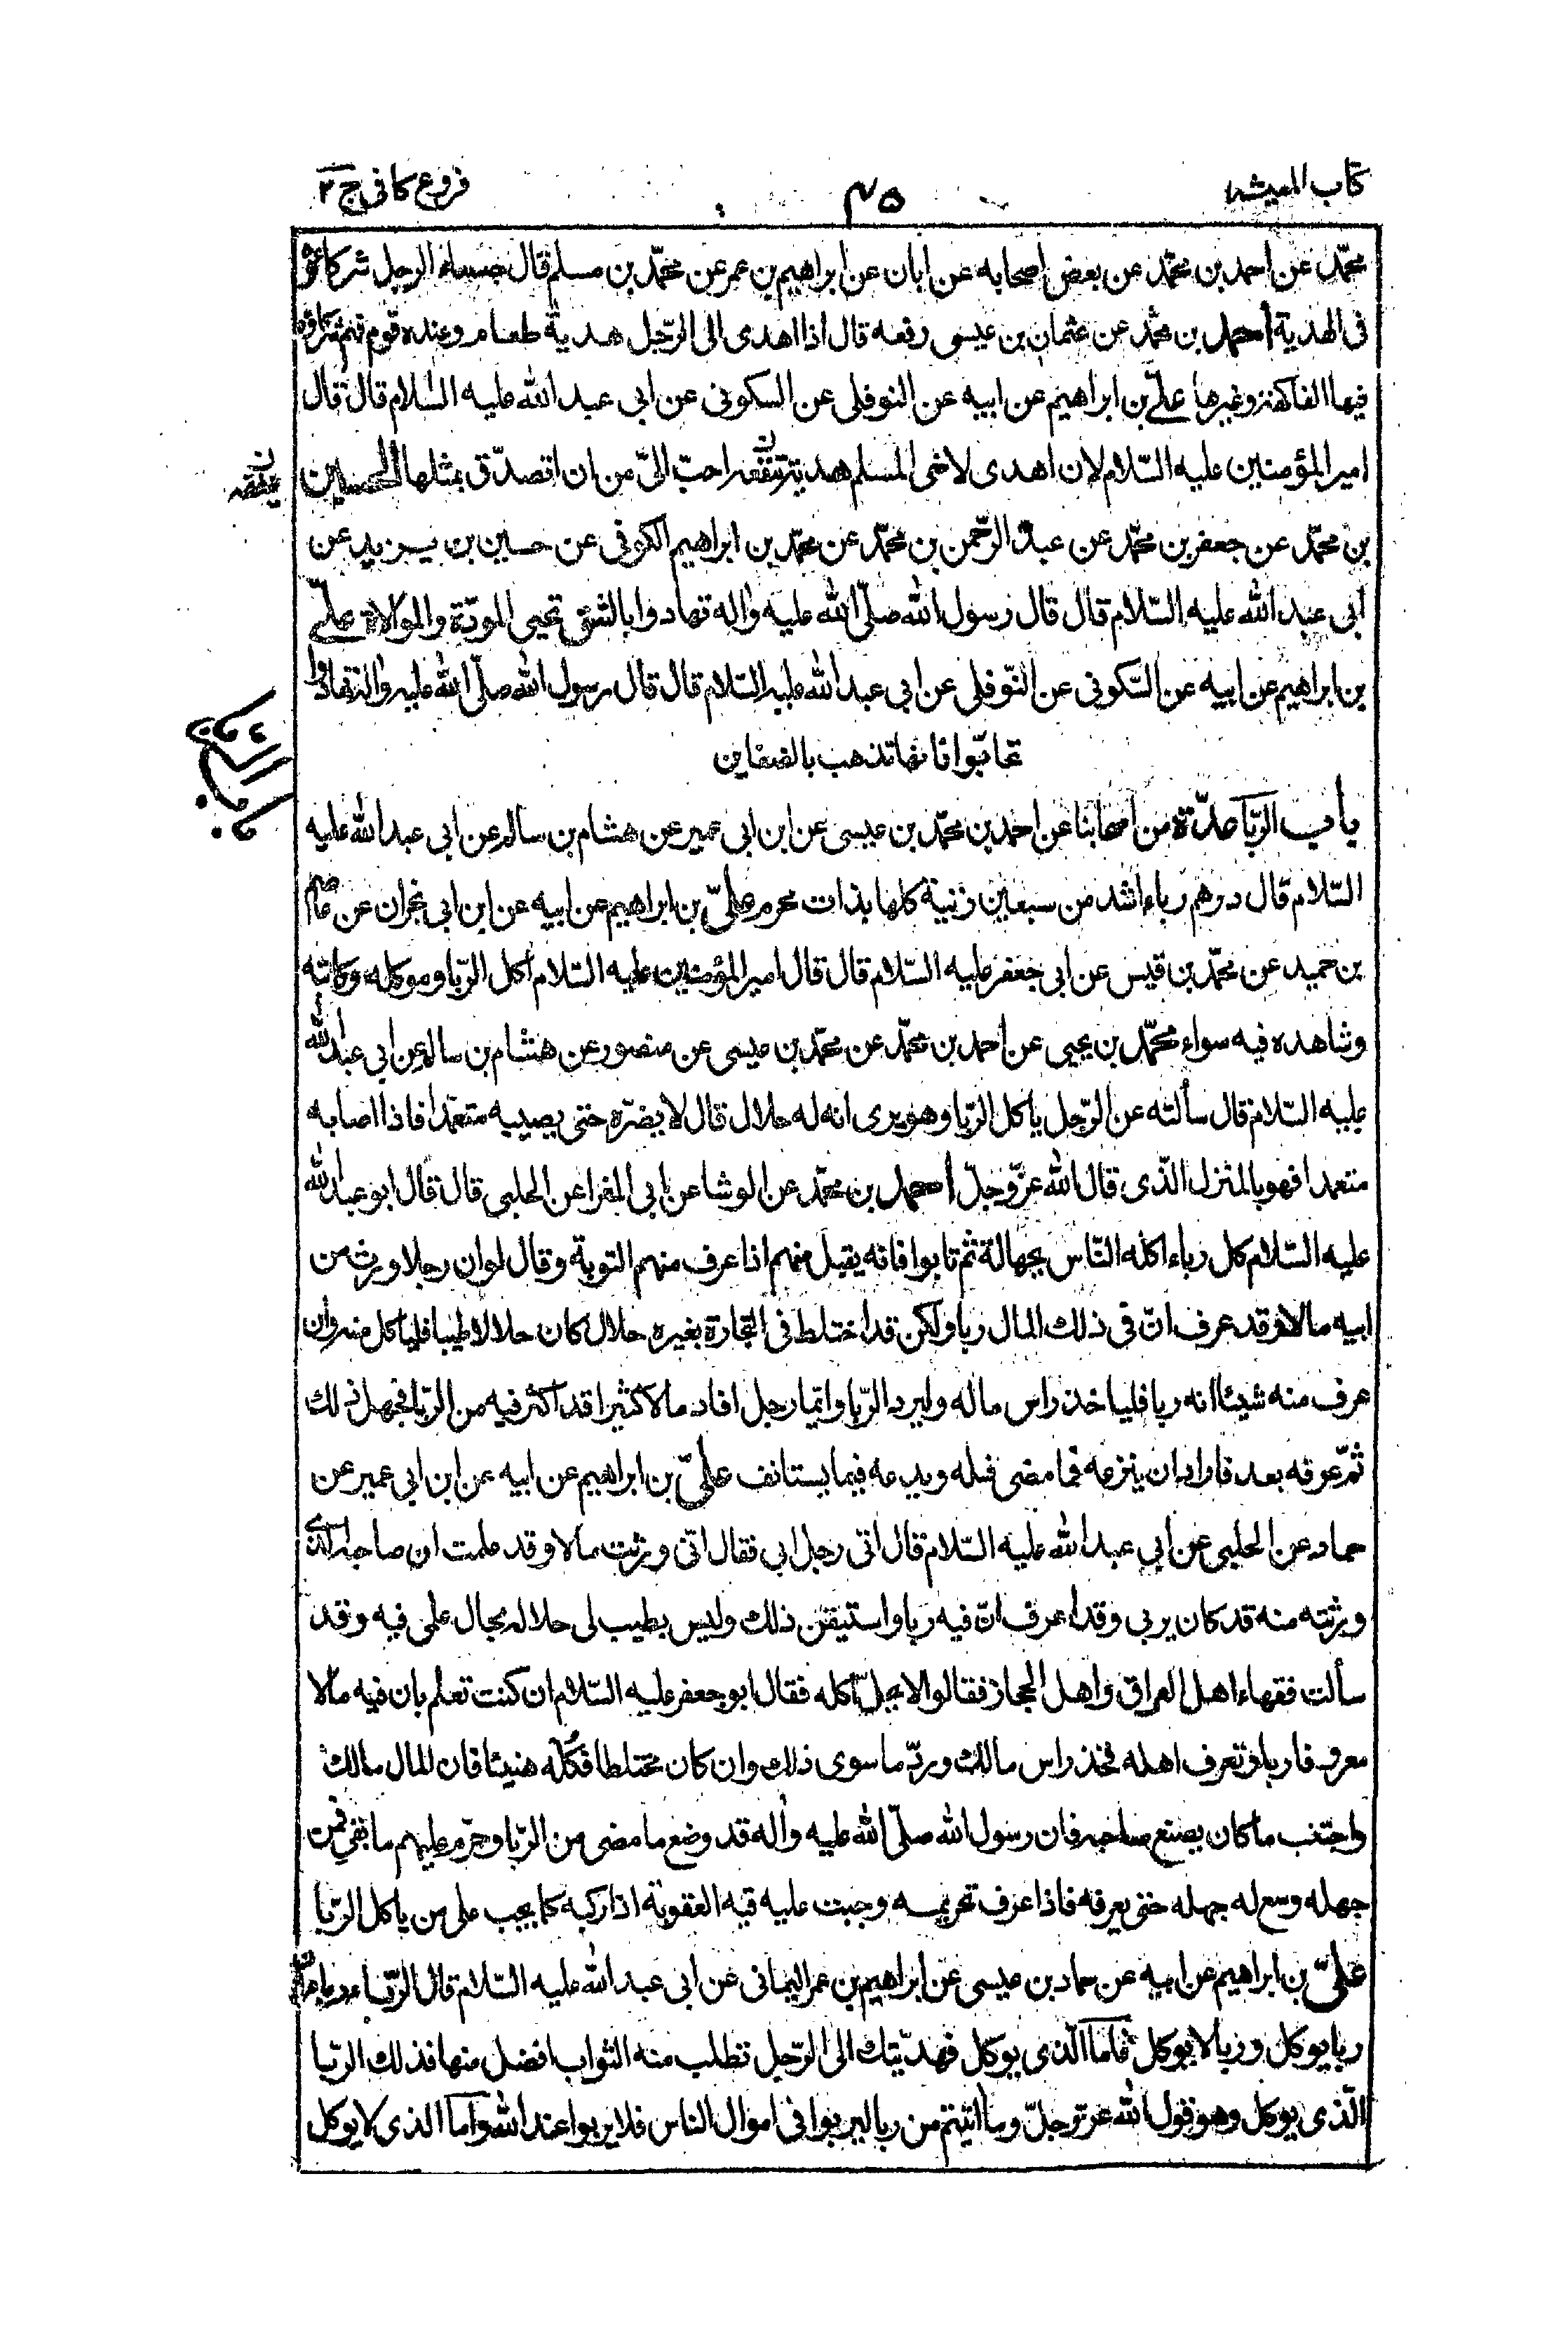 كتاب المعيشه ٤٥ فروع كافى ج ٢
محمّد عن احمد بن محمّد عن بعض اصحابه عن ابان عن ابراهيم بن عمر عن محمّد بن مسلم قال جلساء الرجل شركائه
فى الهدية أحمد بن محمّد عن عثمان بن عيسى رفعه قال اذا اهدى الى الرّجل هدية طعام وعنده قوم فهم شركاؤه
فيها الفاكهة وغيرها علىّ بن ابراهيم عن ابيه عن النوفلى عن السكونى عن ابى عبد الله عليه السّلام قال قال
امير المؤمنين عليه السّلام لان اهدى لاخى المسلم هدية تنفعه احبّ الىّ من ان اتصدّق بمثلها الحسين
بن محمّد عن جعفر بن محمّد عن عبد الرّحمن بن محمّد عن محمّد بن ابراهيم الكوفى عن حسين بن يزيد عن
ابى عبد الله عليه السّلام قال قال رسول الله صلّى الله عليه واله تهادوا بالنبق تحيى المودّة والموالاة علىّ
بن ابراهيم عن ابيه عن السّكونى عن النّوفلى عن ابى عبد الله عليه السّلام قال قال رسول الله صلّى الله عليه واله تهادوا
تحابّوا فانها تذهب بالضغاين
باب الرّبا
باب الرّبا عدّة من اصحابنا عن احمد بن محمّد بن عيسى عن ابن ابى عمير عن هشام بن سالم عن ابى عبد الله عليه
السّلام قال درهم رباء اشد من سبعين زنية كلها بذات محرم علىّ بن ابراهيم عن ابيه عن ابن ابى نجران عن عاصم
بن حميد عن محمّد بن قيس عن ابى جعفر عليه السّلام قال قال امير المؤمنين عليه السّلام آكل الرّبا وموكله وكاتبه
وشاهده فيه سواء محمّد بن يحيى عن احمد بن محمّد عن محمّد بن عيسى عن منصور عن هشام بن سالم عن ابى عبد الله
عليه السّلام قال سألته عن الرّجل ياكل الرّبا وهو يرى انه له حلال قال لا يضرّه حتى يصيبه متعمّدا فاذا اصابه
متعمدا فهو بالمنزل الّذى قال الله عزّوجلّ أحمد بن محمّد عن الوشا عن ابى المغرا عن الحلبى قال قال ابو عبد الله
عليه السّلام كل رباء اكله النّاس بجهالة ثم تابوا فانه يقبل منهم اذا عرف منهم التوبة وقال لو ان رجلا ورث من
ابيه مالا وقد عرف انّ فى ذلك المال ربا ولكن قد اختلط فى التجارة بغيره حلال كان حلالا طيبا فلياكل منه وان
عرف منه شيئا انه ربا فلياخذ راس ماله وليرد الرّبا وايّما رجل افاد مالا كثيرا قد اكثر فيه من الرّبا فجهل ذلك
ثمّ عرفه بعد فاراد ان ينزعه فما مضى فله ويدعه فيما يستانف علىّ بن ابراهيم عن ابيه عن ابن ابى عمير عن
حماد عن الحلبى عن ابى عبد الله عليه السّلام قال اتى رجل ابى فقال انّى ورثت مالا وقد علمت ان صاحبه الذى
ورثته منه قد كان يربى وقد اعرف انّ فيه ربا واستيقن ذلك وليس يطيب لى حلاله بحال علمى فيه وقد
سألت فقهاء اهل العراق واهل الحجاز فقالوا لا يحلّ اكله فقال ابو جعفر عليه السّلام ان كنت تعلم بان فيه مالا
معروفا ربا وتعرف اهله فخذ راس مالك وردّ ما سوى ذلك وان كان مختلطا فكله هنيئا فان المال مالك
واجتنب ما كان يصنع صاحبه فان رسول الله صلّى الله عليه وآله قد وضع ما مضى من الرّبا وحرّم عليهم ما بقى فمن
جهله وسع له جهله حتى يعرفه فاذا عرف تحريمه وجبت عليه فيه العقوبة اذا ركبه كما يجب على من ياكل الرّبا
علىّ بن ابراهيم عن ابيه عن حماد بن عيسى عن ابراهيم بن عمر اليمانى عن ابى عبد الله عليه السّلام قال الرّباء رباءان
ربا يوكل وربا لا يوكل فامّا الّذى يوكل فهديّتك الى الرّجل تطلب منه الثواب افضل منها فذلك الرّبا
الّذى يوكل وهو قول الله عزّ وجلّ وما اتيتم من ربا ليربوا فى اموال الناس فلا يربوا عند الله وامّا الذى لا يوكل